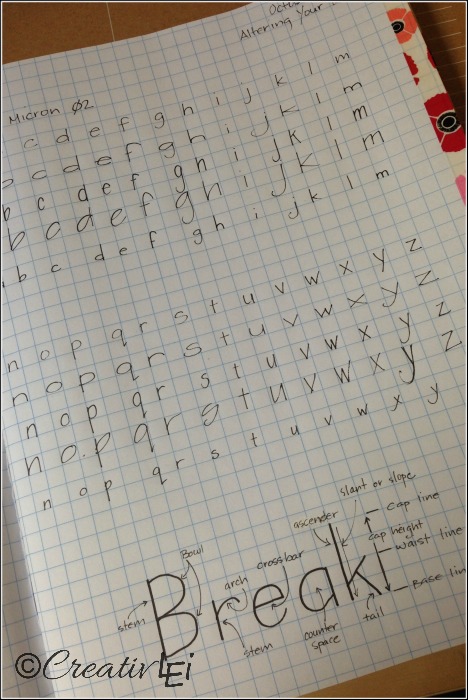 Altering Your
Micron Ø2
c d e f g h i j k l m
b c d e f g h i j k l m
b c d e f g h i j k l m
b c d e f g h i j k l m
b c d e f g h i j k l m
n o p q r s t u v w x y z
n o p q r s t u v w x y z
n o p q r s t u v w x y z
n o p q r s t u v w x y z
n o p q r s t u v w x y
slant or slope
Cap line
ascender
cap height
waist line
Bowl
arch
crossbar
Break
Base
stem
stem
counter
space
tail
©CreativLEi